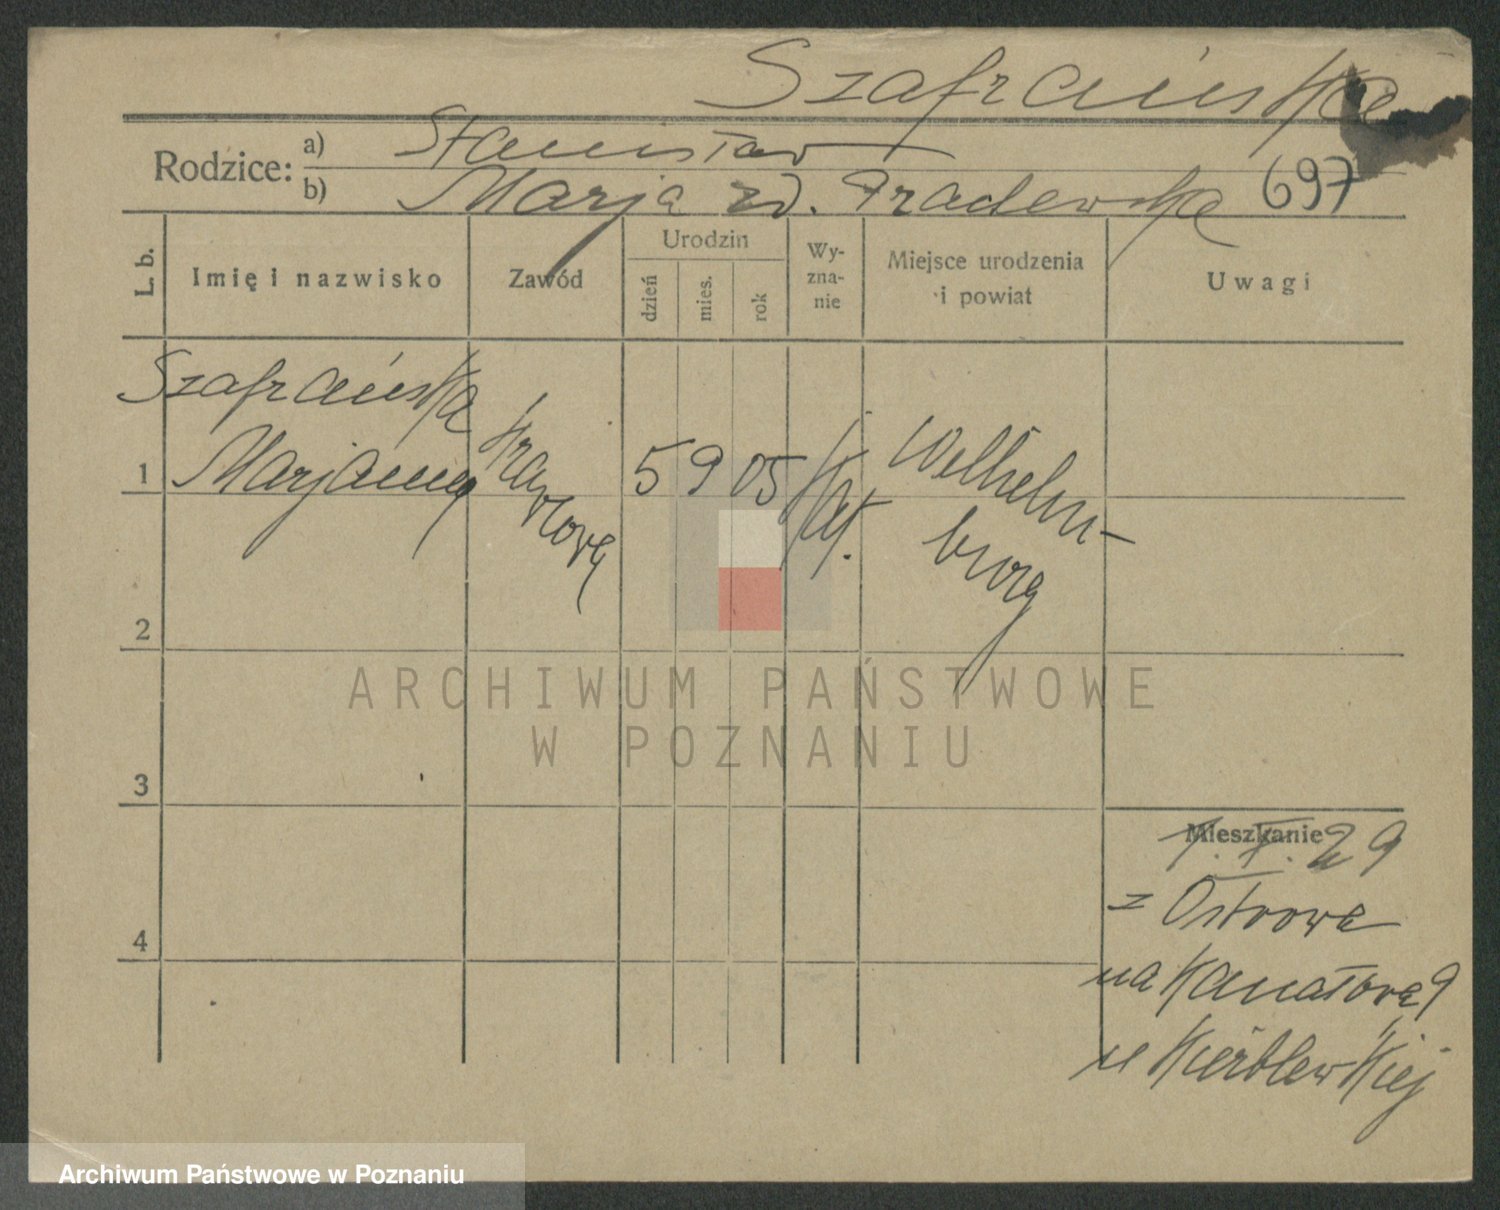 Szafrańska
Rodzice: a) Stanisław
b) Marja zd. 697
L. b.
Imię i nazwisko
Zawód
Urodzin
dzień
mies.
rok
Wy-
zna-
nie
Miejsce urodzenia
i powiat
Uwagi
Szafrańska
1 Marjanna
5 9 05 kat.
Welhelm-
burg
2
3
4
Mieszkanie
1. X. 29
z Ostrowa
na Kanałową 9
u
ARCHIWUM PAŃSTWOWE
W POZNANIU
Archiwum Państwowe w Poznaniu